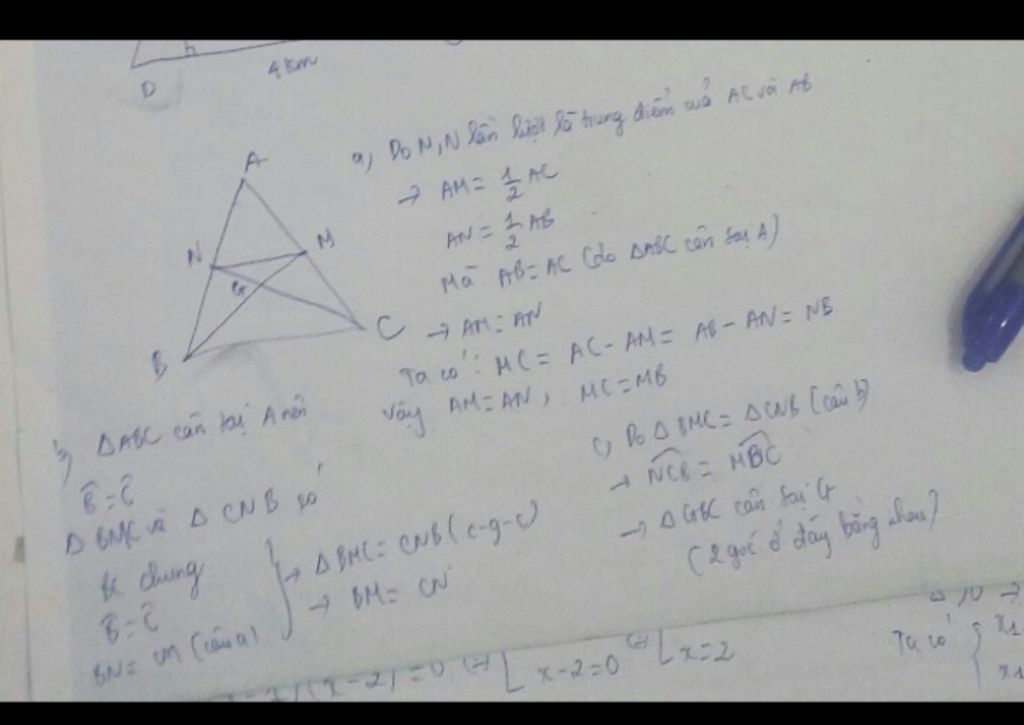 D
h
4 km
A
N
M
G
B
C
a, Do M, N lần lượt là trung điểm của AC và AB
→ AM = 1/2 AC
AN = 1/2 AB
Mà AB = AC (do ΔABC cân tại A)
→ AM = AN
Ta có: MC = AC - AM = AB - AN = NB
Vậy AM = AN, MC = MB
b, ΔABC cân tại A nên
B̂ = Ĉ
Δ BMC và Δ CNB có
BC chung
B̂ = Ĉ
BN = CM (câu a)
→ Δ BMC = CNB (c-g-c)
→ BM = CN
c, Do Δ BMC = Δ CNB (câu b)
→ NCB = MBC
→ Δ GBC cân tại G
(2 góc ở đáy bằng nhau)
(x-2) = 0 (=) [ x-2=0 (=) [ x=2
Ta có { x1
x1